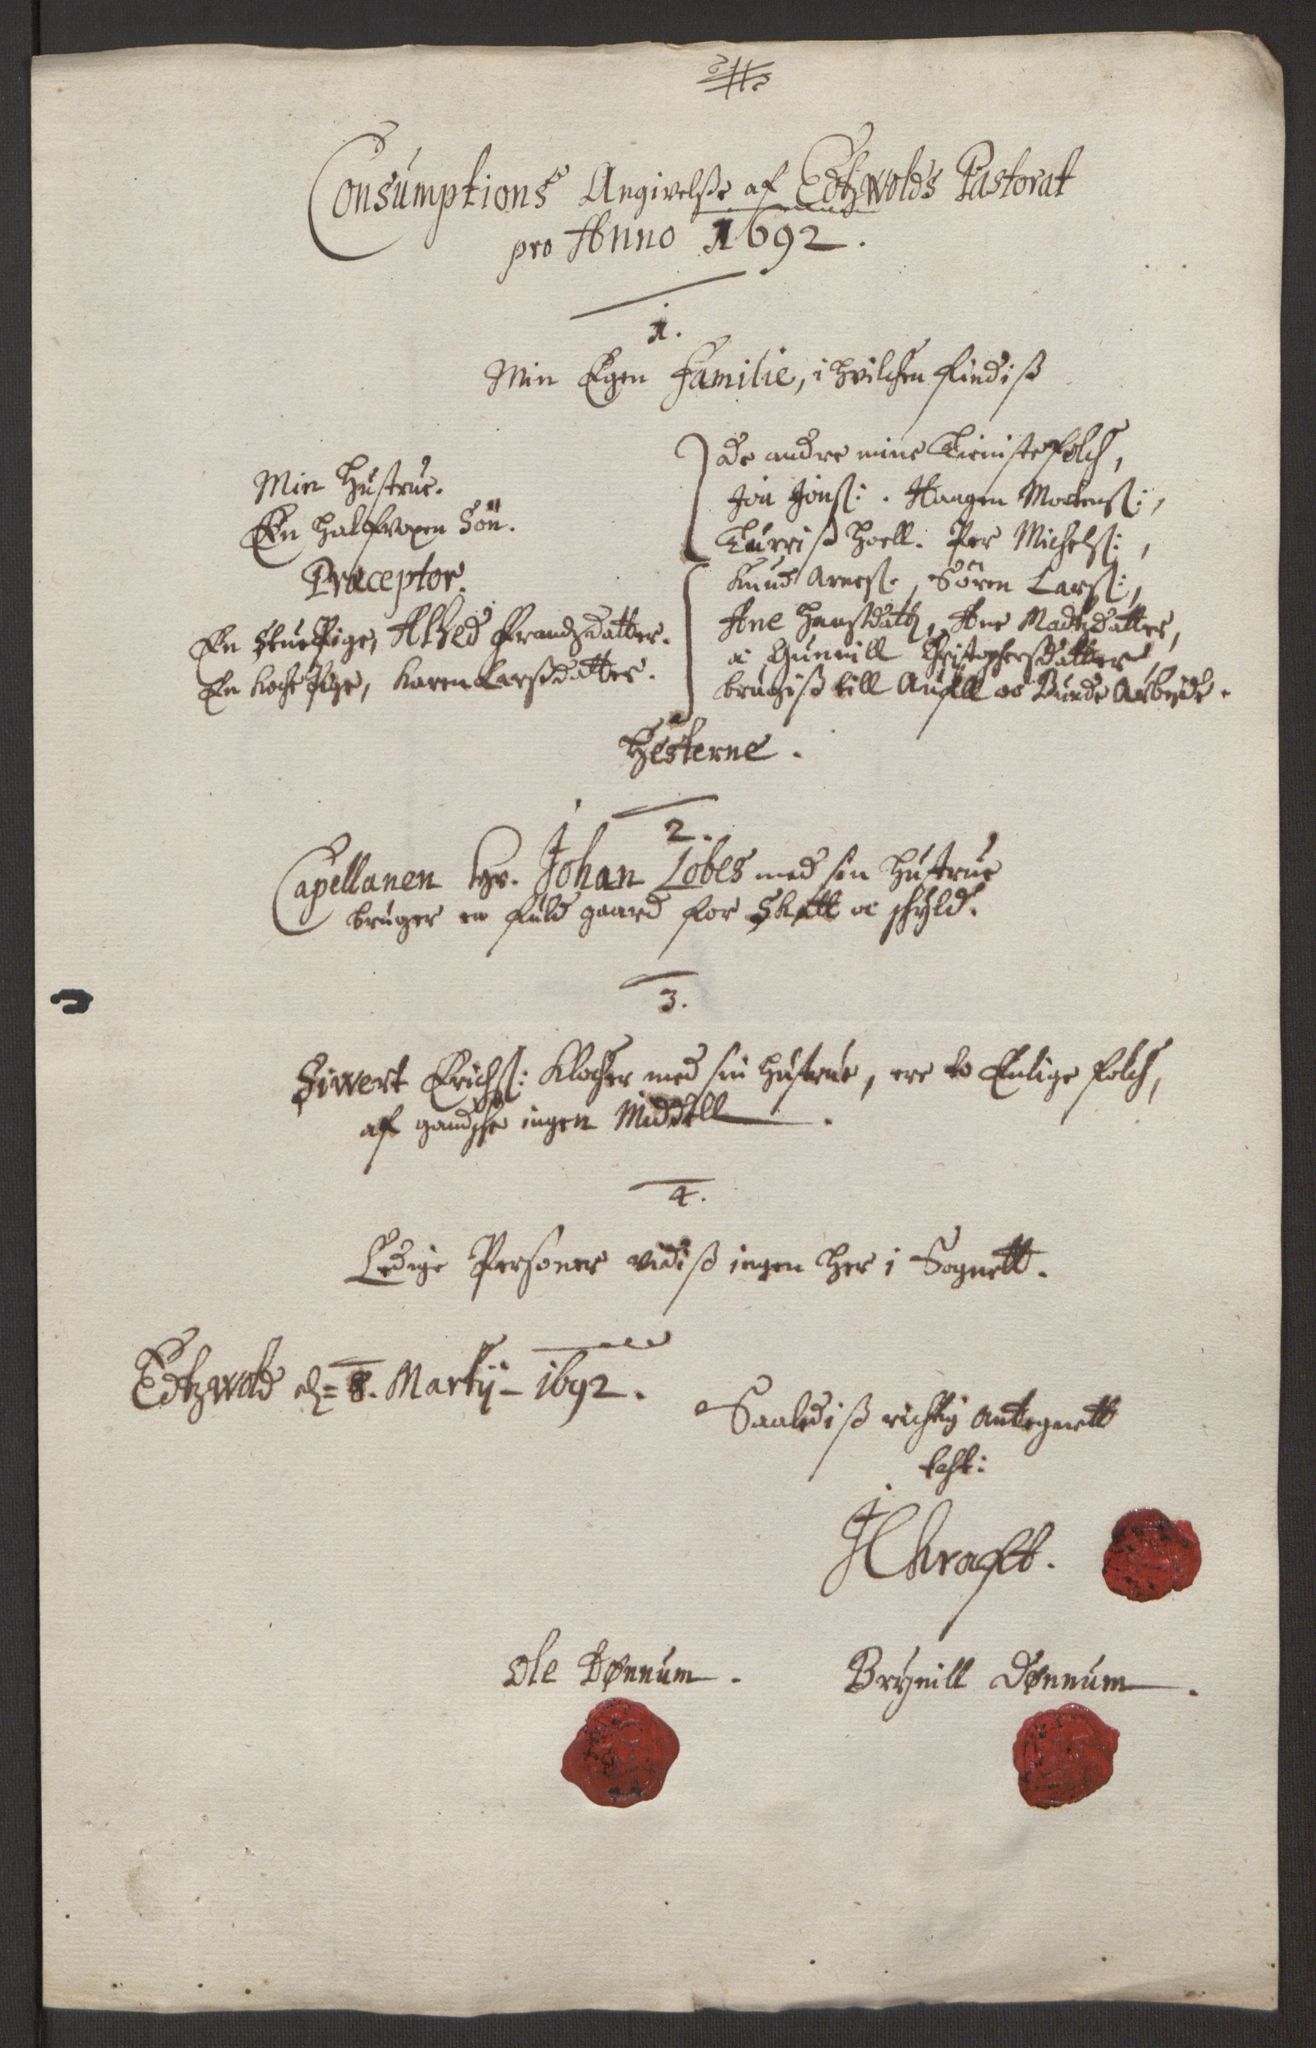 Consumptions Angivelße af Edtzwolds Pastorat
pro Anno 1692.
1.
Min Egen Familie, i hvilchen findiß
Min Hustrue.
En halfvoxen Sön.
Præceptor.
En Stue Pige, Alhed Frandzdatter.
En Koche Pige, Karen Larssdatter.
de andre mine tienistefolch,
Jon Jonss: . Haagen Mortenss: ,
Kurriß hoell. Per Michelss: ,
Knud Arness: , Sören Larss: ,
Ane Hanssdatt, Ane Madtzdatter,
oc Gunnill Christophersdatter,
brugiß till Aufll oc Bunde Arbejde.
Hesterne.
2.
Capellanen hr. Johan Lobes med sin hustrue
bruger en fuld gaard for Skatt oc schyld.
3.
Siwert Erichss: Klocher med sin hustrue, ere to Enlige folch,
af gandsche ingen Middell .
4.
Ledige Personer vidiß ingen her i Sognett.
Edtzwold d= 8. Martij - 1692.
Saalediß richtig Antegnett
test:
JCKraftt.
Ole Dønnum .
Brynill Dønnum .